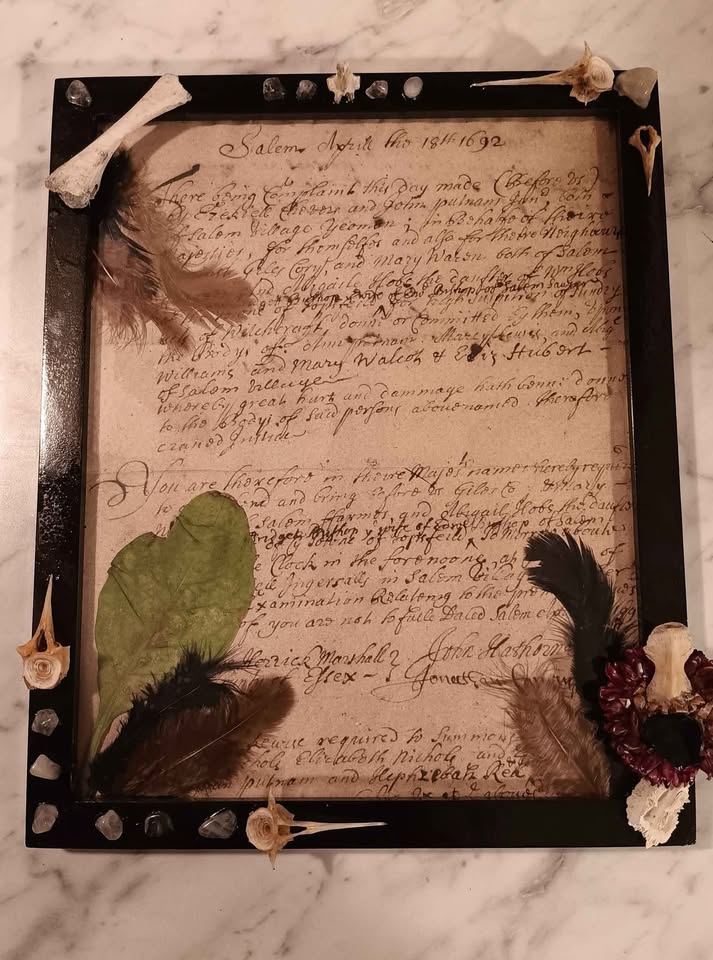 Salem Aprill the 18th 1692
There being Complaint this day made (Before us)
Ezekiell Chevers and John putnam Jun, both
of Salem Village Yeomen; in Behalfe of theire
Majesties, for themselfes and also for theire Neighbours
Giles Cory, and Mary Waren both of Salem
and Abigaile Hobs the daughter of Wm Hobs
Bishop wife of Bishop of Salem Sawyer
of high suspition of Sundry
of Witchcraft, donne or Committed by them, upon
the Bodys of: putnam, Marcy Lewis, and Abig
Williams and Mary Walcot & Eliz Hubert —
of Salem Village —
whereby great hurt and dammage hath benne donne
to the Bodys of Said persons abovenamed. therefore
craved Justice
You are therefore in theire Majests names hereby required
to and bring before us Giles Co & Mary
Salem ffarmes, and Abigail Hobs the daugh
Bridget Bushop wife of Bishop of Salem
to morrow about
Clock in the forenoone, at of
Ingersalls in Salem Villag
Examination Relateing to the
of you are not to faile Dated Salem
Herrick Marshall John Hathorne
of Essex — Jonathan
required to Summons
Elizabeth Nichols and
putnam and Hephzebah Rea